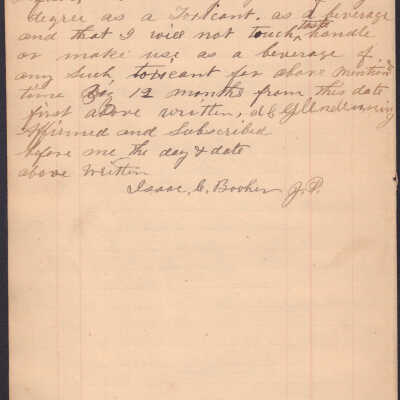 degree as a Toxicant. as a beverage
and that I will not touch, taste handle
or make use as a beverage of
any Such, toxicant for above mention'd
time 12 months from this date
first above written,
Affirmed and Subscribed
before me the day & date
above written
Isaac, C. Booher J.P.